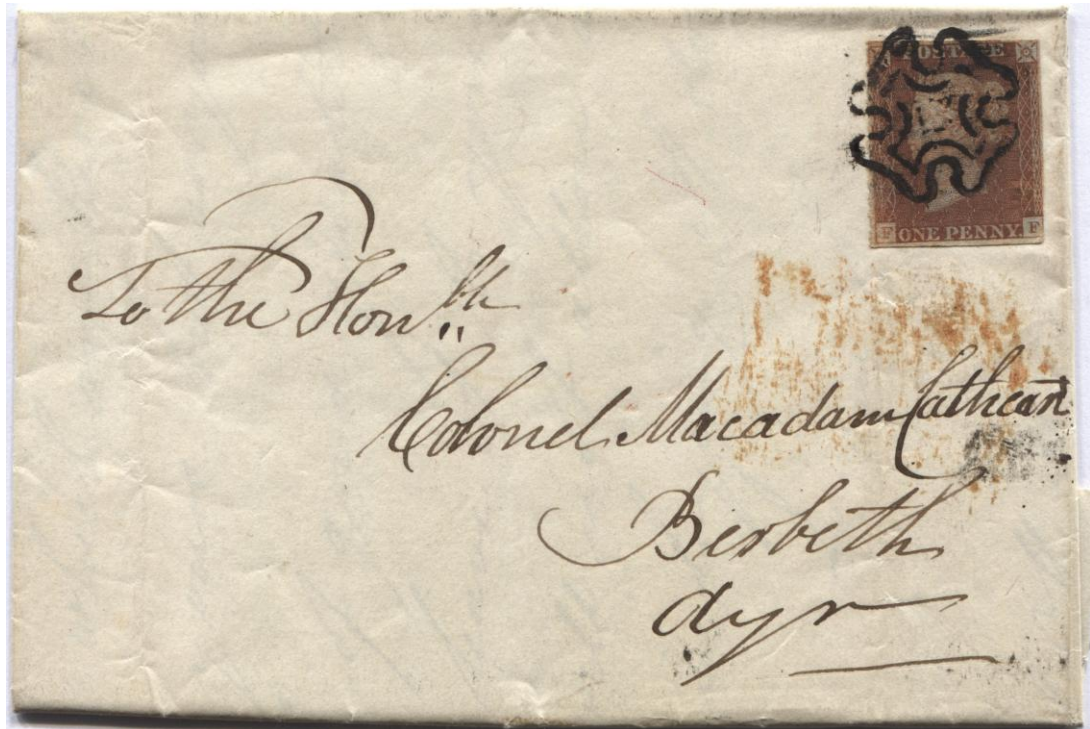 POSTAGE
F ONE PENNY F
To the Honble
Colonel Macadam Cathcart
Berbeth
Ayr